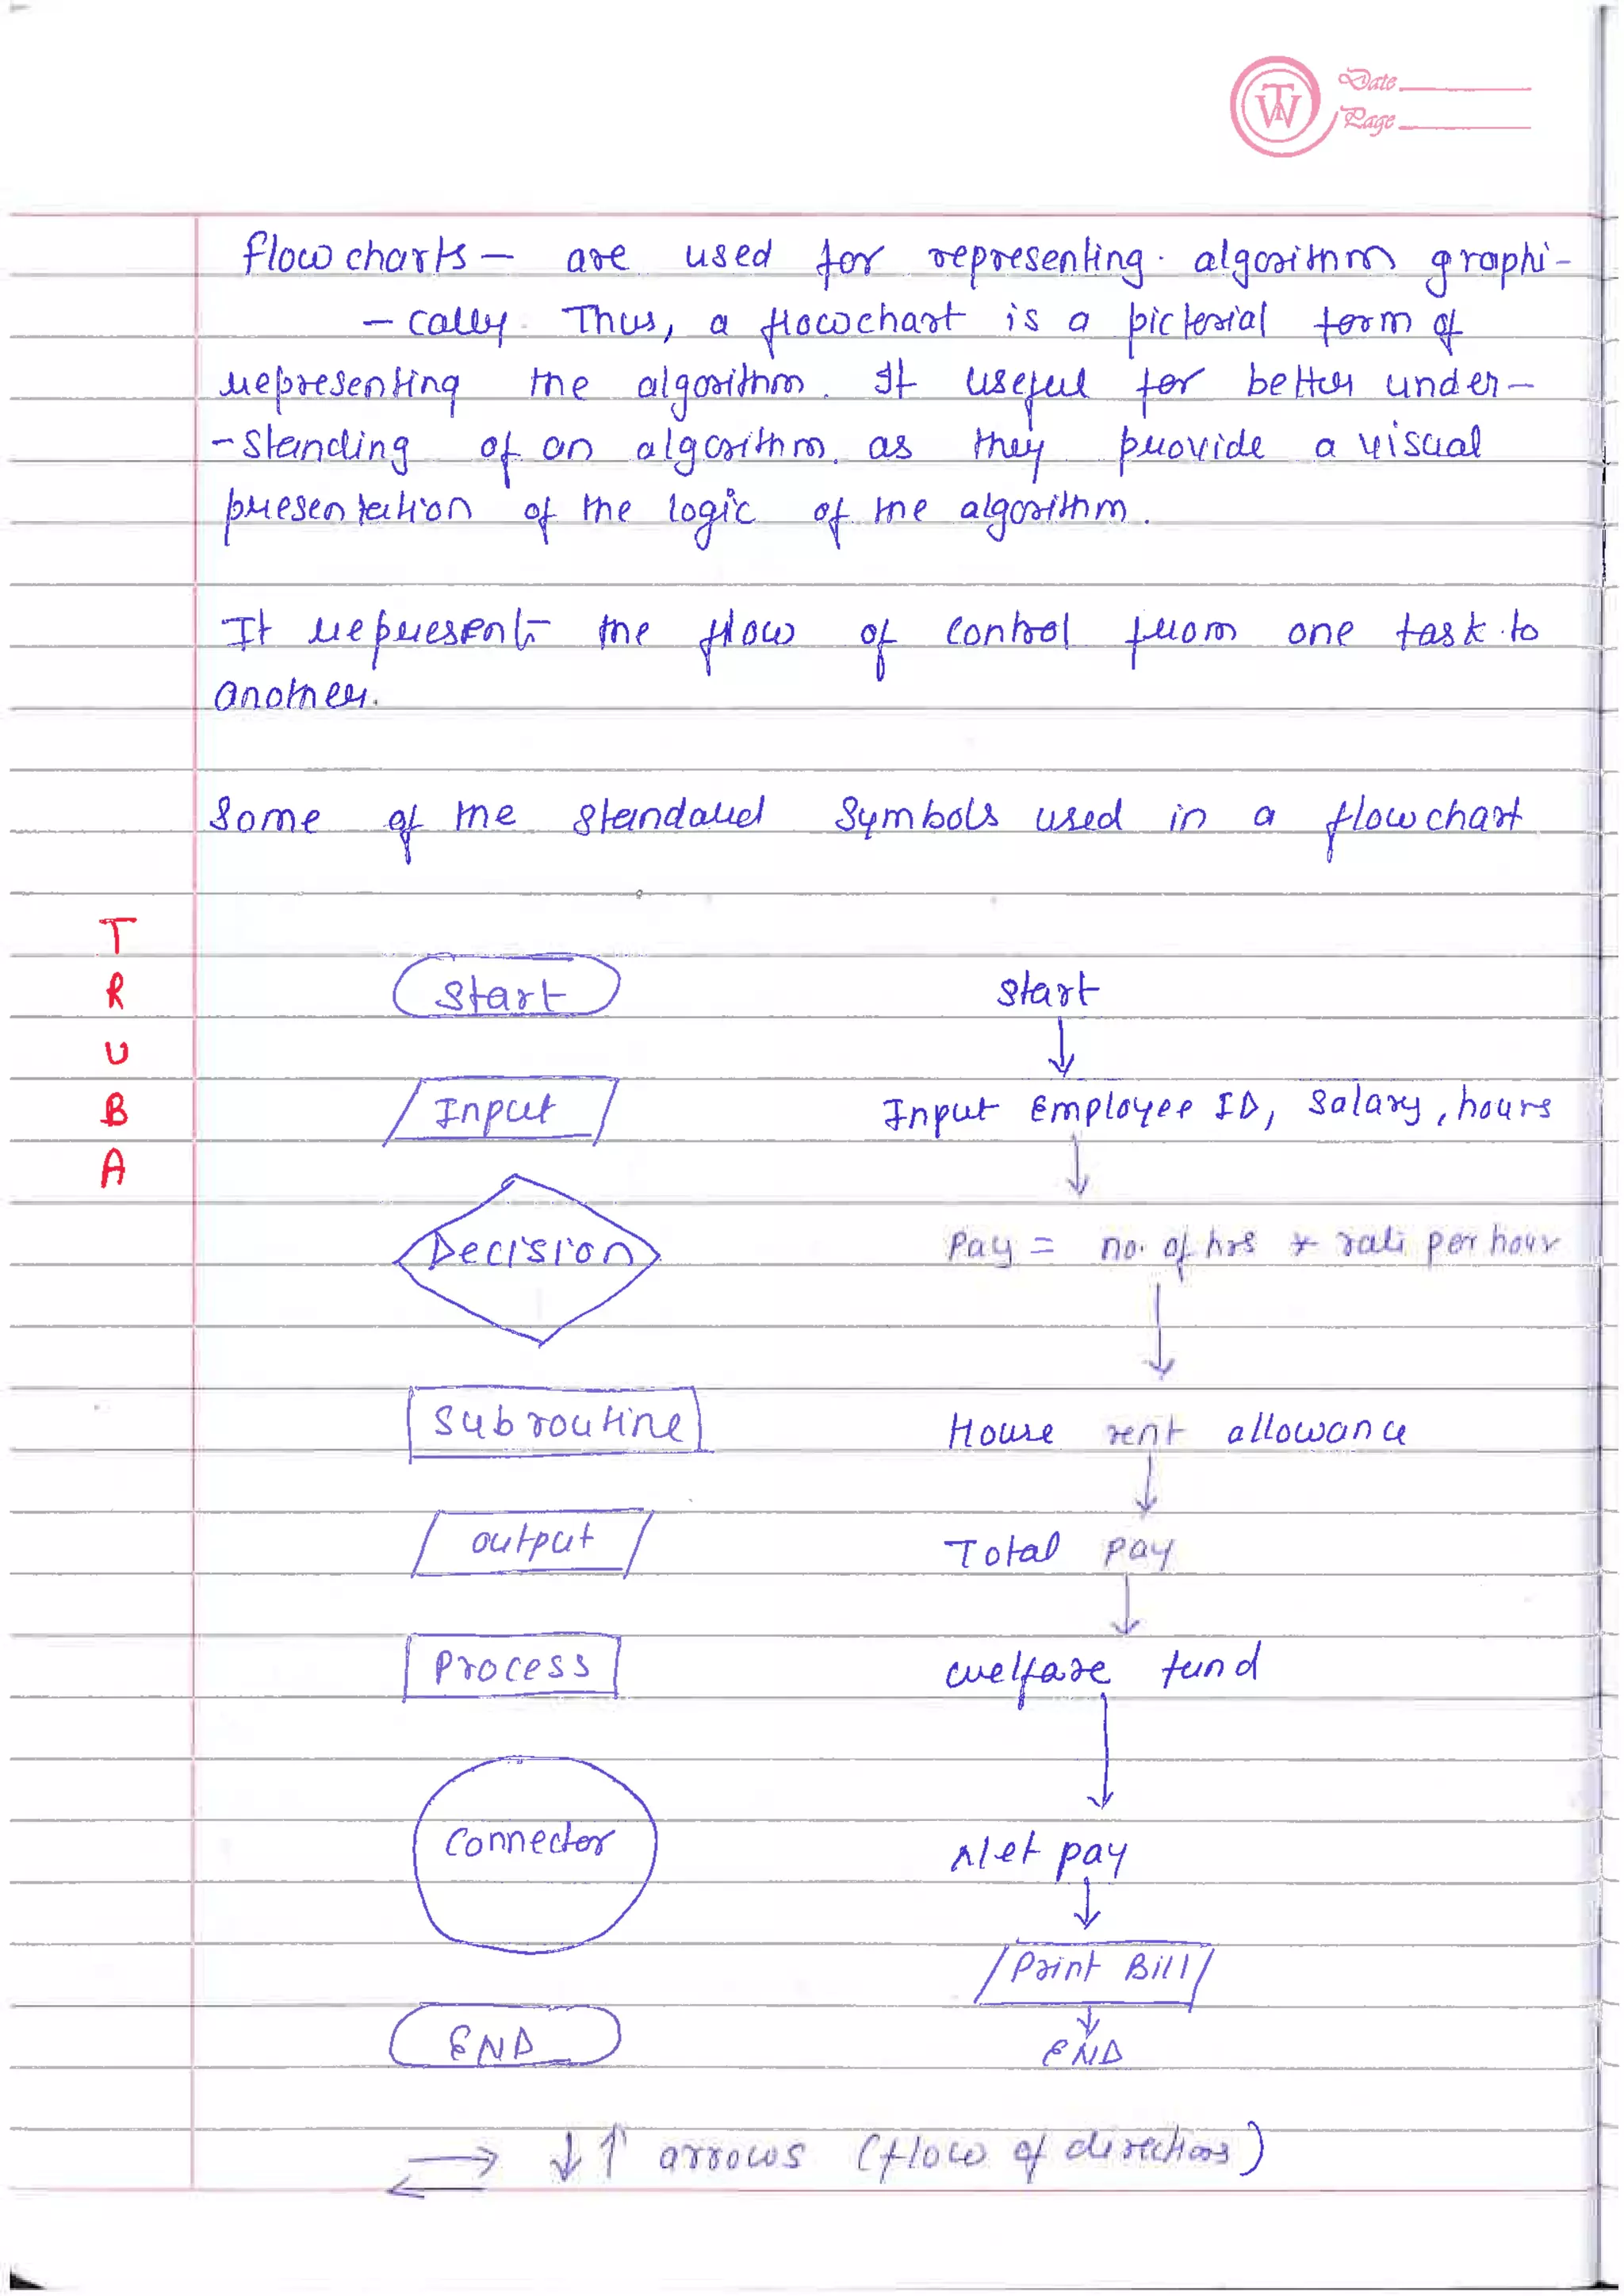 Date
Page
TW
flow charts — are used for representing algorithm graphi-
- cally. Thus, a flowchart is a pictorial form of
representing the algorithm. It useful for better under-
- standing of an algorithm. as they provide a visual
presentation of the logic of the algorithm.
It represents the flow of control from one task to
another.
Some of the standard Symbols used in a flowchart
T
R
U
B
A
Start
Input
Decision
Subroutine
output
Process
Connector
END
Start
Input Employee ID, Salary, hours
Pay = no. of hrs * rate per hour
House rent allowance
Total pay
welfare fund
Net pay
Print Bill
END
arrows (flow of directions)